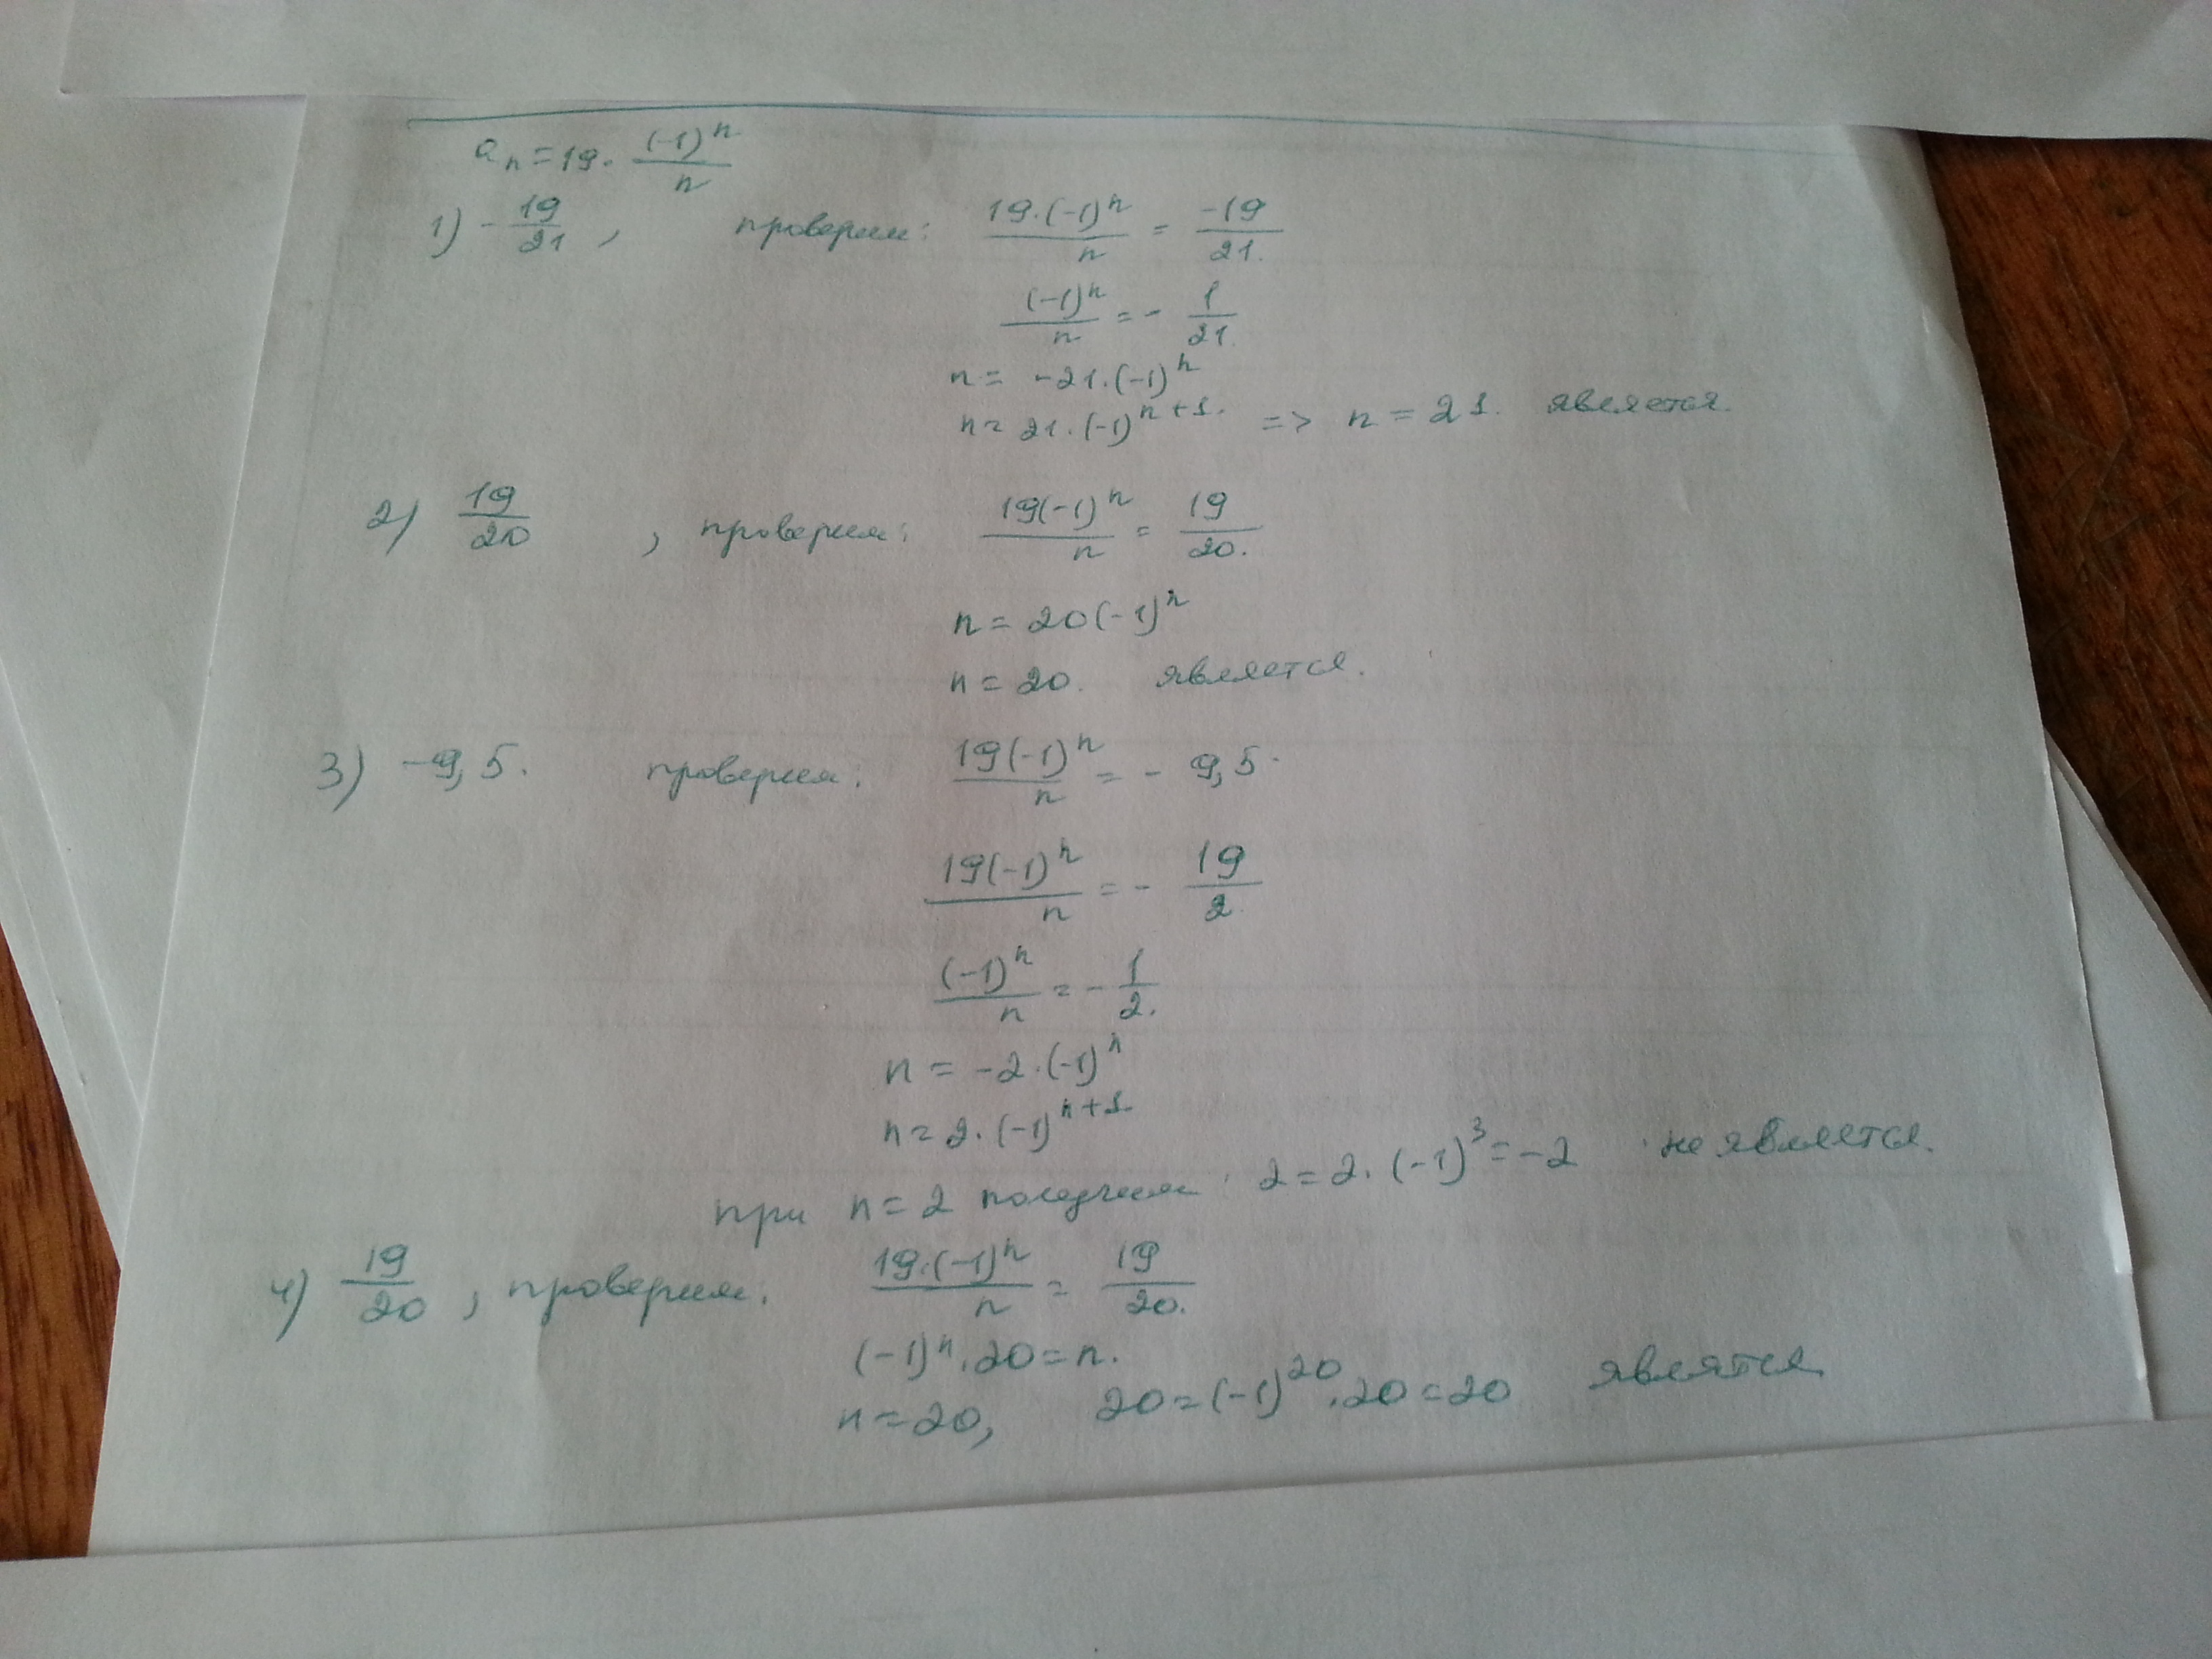 aₙ = 19 · (-1)ⁿ/n
1) - 19/21 , проверим: 19·(-1)ⁿ/n = -19/21.
(-1)ⁿ/n = - 1/21.
n = -21·(-1)ⁿ
n = 21·(-1)ⁿ⁺¹. => n = 21. является.
2) 19/20 , проверим: 19(-1)ⁿ/n = 19/20.
n = 20(-1)ⁿ
n = 20. является.
3) -9,5. проверим: 19(-1)ⁿ/n = - 9,5.
19(-1)ⁿ/n = - 19/2.
(-1)ⁿ/n = - 1/2.
n = -2·(-1)ⁿ
n = 2·(-1)ⁿ⁺¹
при n = 2 получим: 2 = 2·(-1)³ = -2 не является.
4) 19/20 , проверим: 19·(-1)ⁿ/n = 19/20.
(-1)ⁿ·20 = n.
n = 20, 20 = (-1)²⁰·20 = 20 являтся